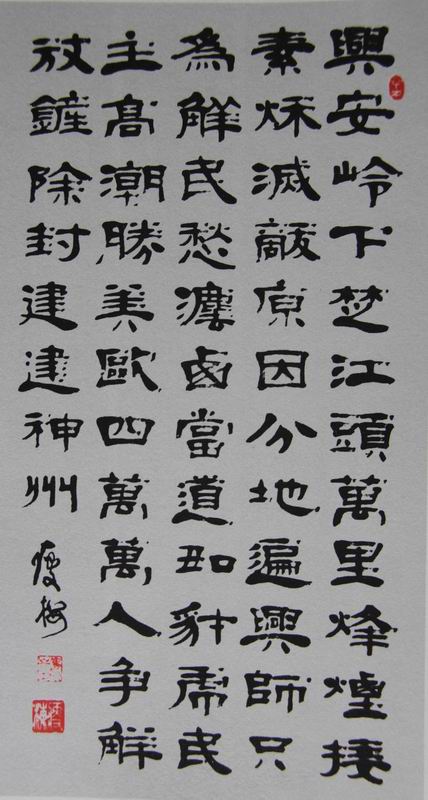 興安岭下楚江頭萬里烽煙接
素秌滅敵原因分地遍興師只
為解民愁鹵當道如豺虎民
主高潮勝美歐四萬萬人争解
放鏟除封建建神州
瘦梅